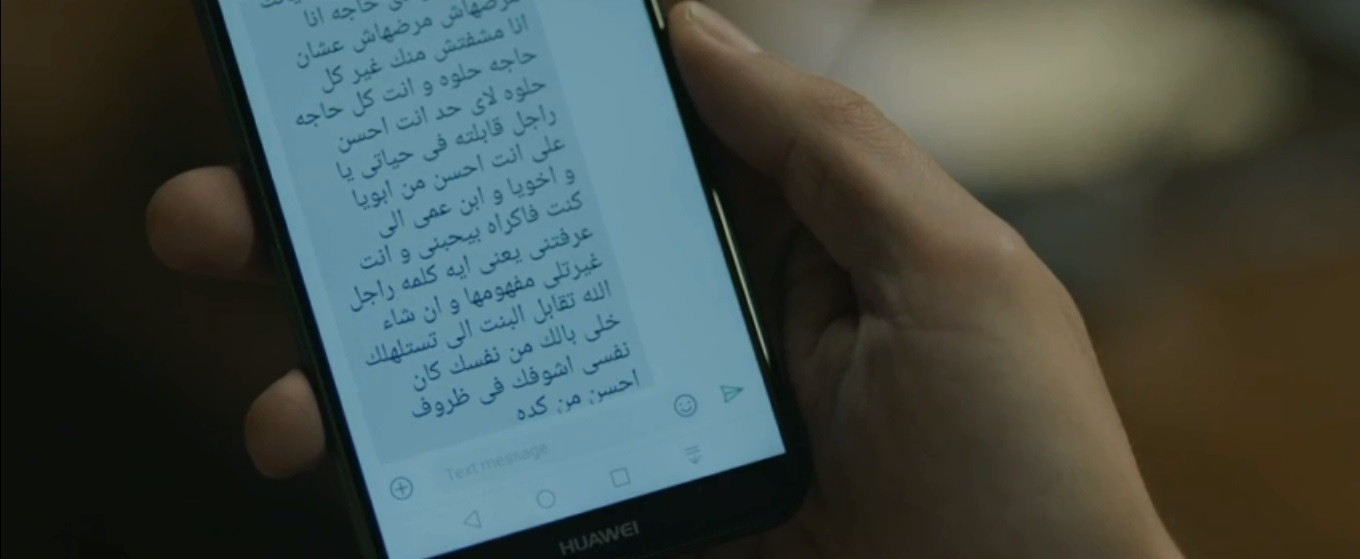 حاجه انا
مرضهاش مرضهاش عشان
انا مشفتش منك غير كل
حاجه حلوه و انت كل حاجه
حلوه لاى حد انت احسن
راجل قابلته فى حياتى يا
على انت احسن من ابويا
و اخويا و ابن عمى الى
كنت فاكراه بيحبنى و انت
عرفتنى يعنى ايه كلمه راجل
غيرتلى مفهومها و ان شاء
الله تقابل البنت الى تستلهلك
خلى بالك من نفسك كان
نفسى اشوفك فى ظروف
احسن من كده
Text message
HUAWEI